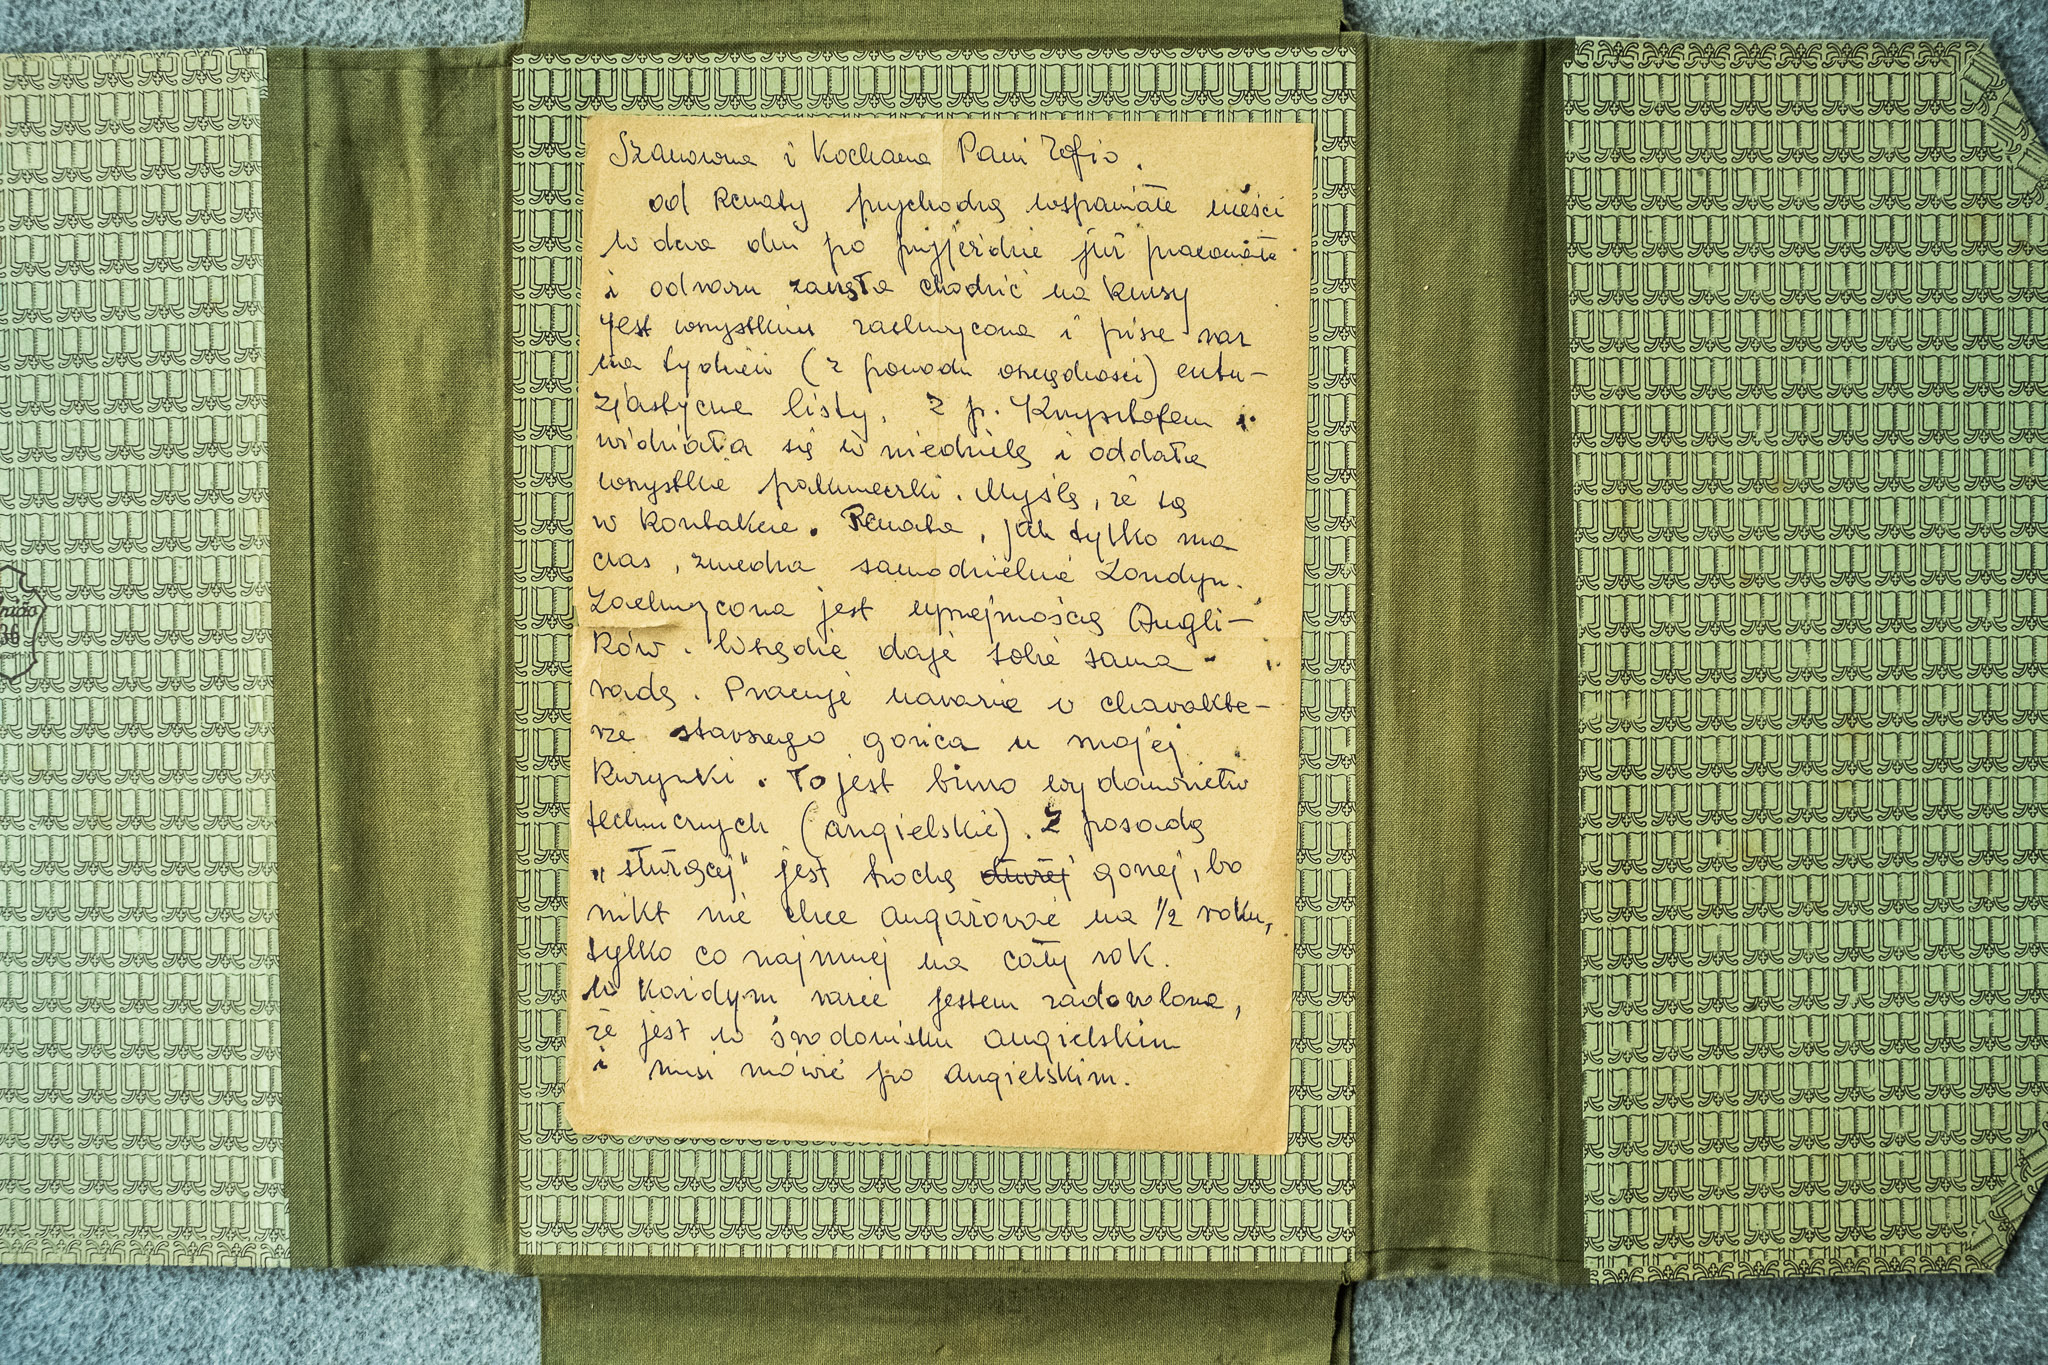 Szanowna i Kochana Pani Zofio.
od Renaty przychodzą wspaniałe wieści
w dwa dni po przyjeździe już pracowała
i od razu zaczęła chodzić na kursy
jest wszystkim zachwycona i pisze raz
na tydzień (z powodu oszczędności) entu-
zjastyczne listy. Z p. Krzysztofem
widziała się w niedzielę i oddała
wszystkie pakuneczki. Myślę, że są
w kontakcie. Renata, jak tylko ma
czas, zwiedza samodzielnie Londyn.
Zachwycona jest uprzejmością Angli-
ków. Wszędzie daje sobie sama
radę. Pracuje narazie w charakte-
rze starszego gońca u mojej
kuzynki. To jest biuro wydawnictw
technicznych (angielskie). Z posadą
„służącej" jest trochę dłużej gorzej, bo
nikt nie chce angażować na 1/2 roku,
tylko co najmniej na cały rok.
W każdym razie jestem zadowolona,
że jest w środowisku angielskim
i musi mówić po angielskim.
36